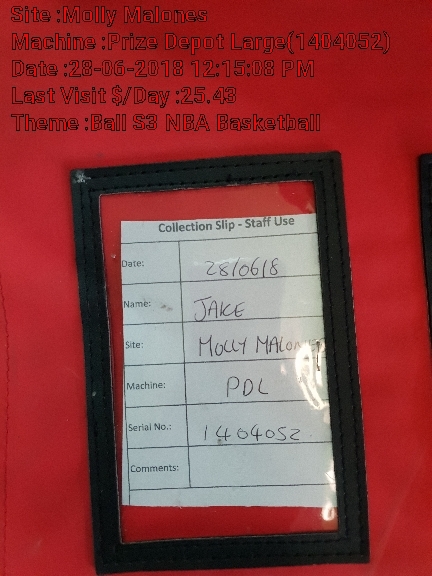 Site :Molly Malones
Machine :Prize Depot Large(1404052)
Date :28-06-2018 12:15:08 PM
Last Visit $/Day :25.43
Theme :Ball S3 NBA Basketball
Collection Slip - Staff Use
Date: 28/06/8
Name: JAKE
Site: MOLLY MALONES
Machine: PDL
Serial No.: 1404052
Comments: